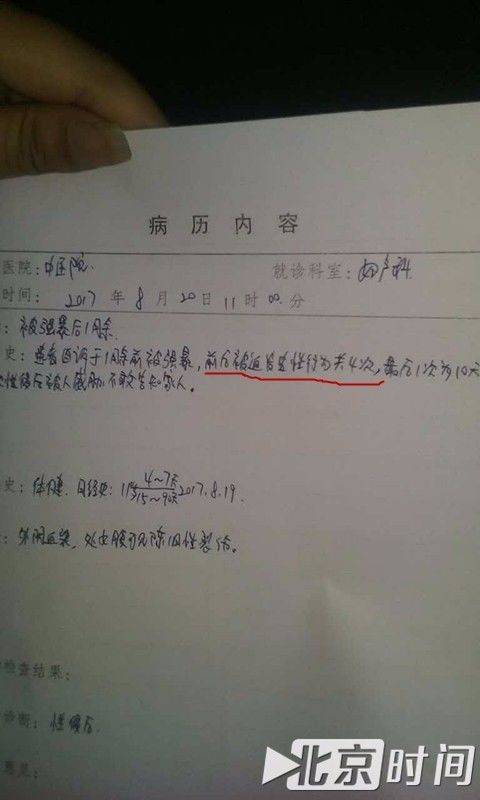 病历内容
医院：中医院 就诊科室：妇产科
时间：2017年8月20日11时00分
：被强暴后1月余
史：患者自诉于1月余前被强暴，前后被迫发生性行为共4次，最后1次为10天
性侵后被人威胁不敢告知家人。
史：体健.月经史：11岁 4～7天/15～90天 2017.8.19.
：外阴正常，处女膜可见陈旧性裂伤。
检查结果：
诊断：性侵后
意见：
北京时间